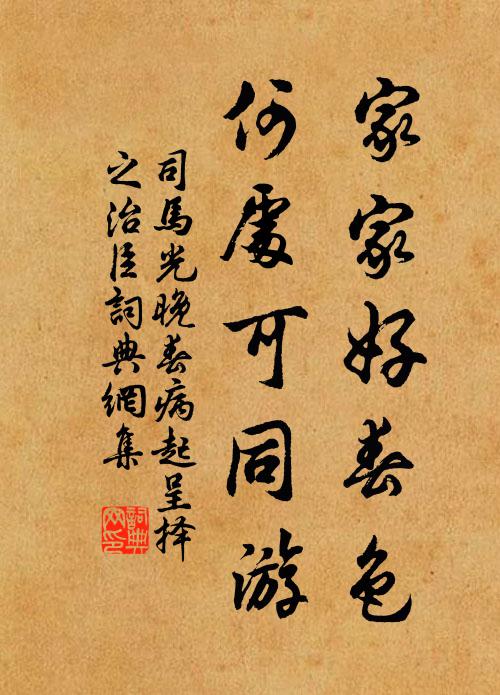 家家好春色
何處可同游
司馬光晚春病起呈择
之治臣詞典網集
詞典网印